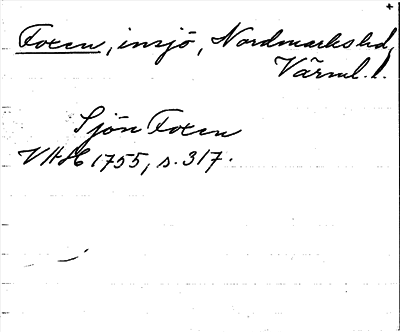 Foxen, insjö, Nordmarks hd,
Värml. l.
Sjön Foxen
VHH 1755, s. 317.